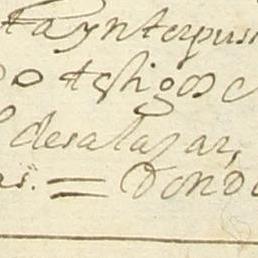 ta ynterpus
do testigos
desalazar,
as. = Don D